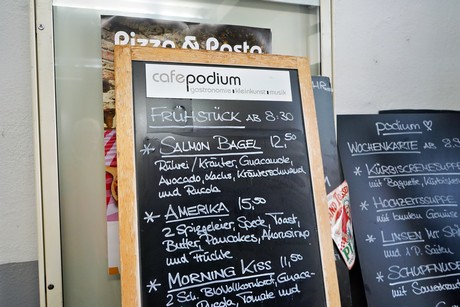 Pizza & Pasta
cafepodium
gastronomie kleinkunst musik
FRÜHSTÜCK AB 8:30
* SALMON BAGEL 12,50
Rührei / Kräuter, Guacamole,
Avocado, Lachs, Kräuterschmand
und Rucola
* AMERIKA 15,50
2 Spiegeleier, Speck, Toast,
Butter, Pancakes, Ahornsirup
und Früchte
* MORNING KISS 11,50
2 Sch. Biovollkornbrot, Guaca-
Rucola, Tomate und
podium
WOCHENKARTE AB
* KÜRBISCREMESUPPE
mit Baguette, Kürbiskernen
* HOCHZEITSSUPPE
mit buntem Gemüse
* LINSEN MIT
* SCHUPFNUDEL
mit Sauerkraut